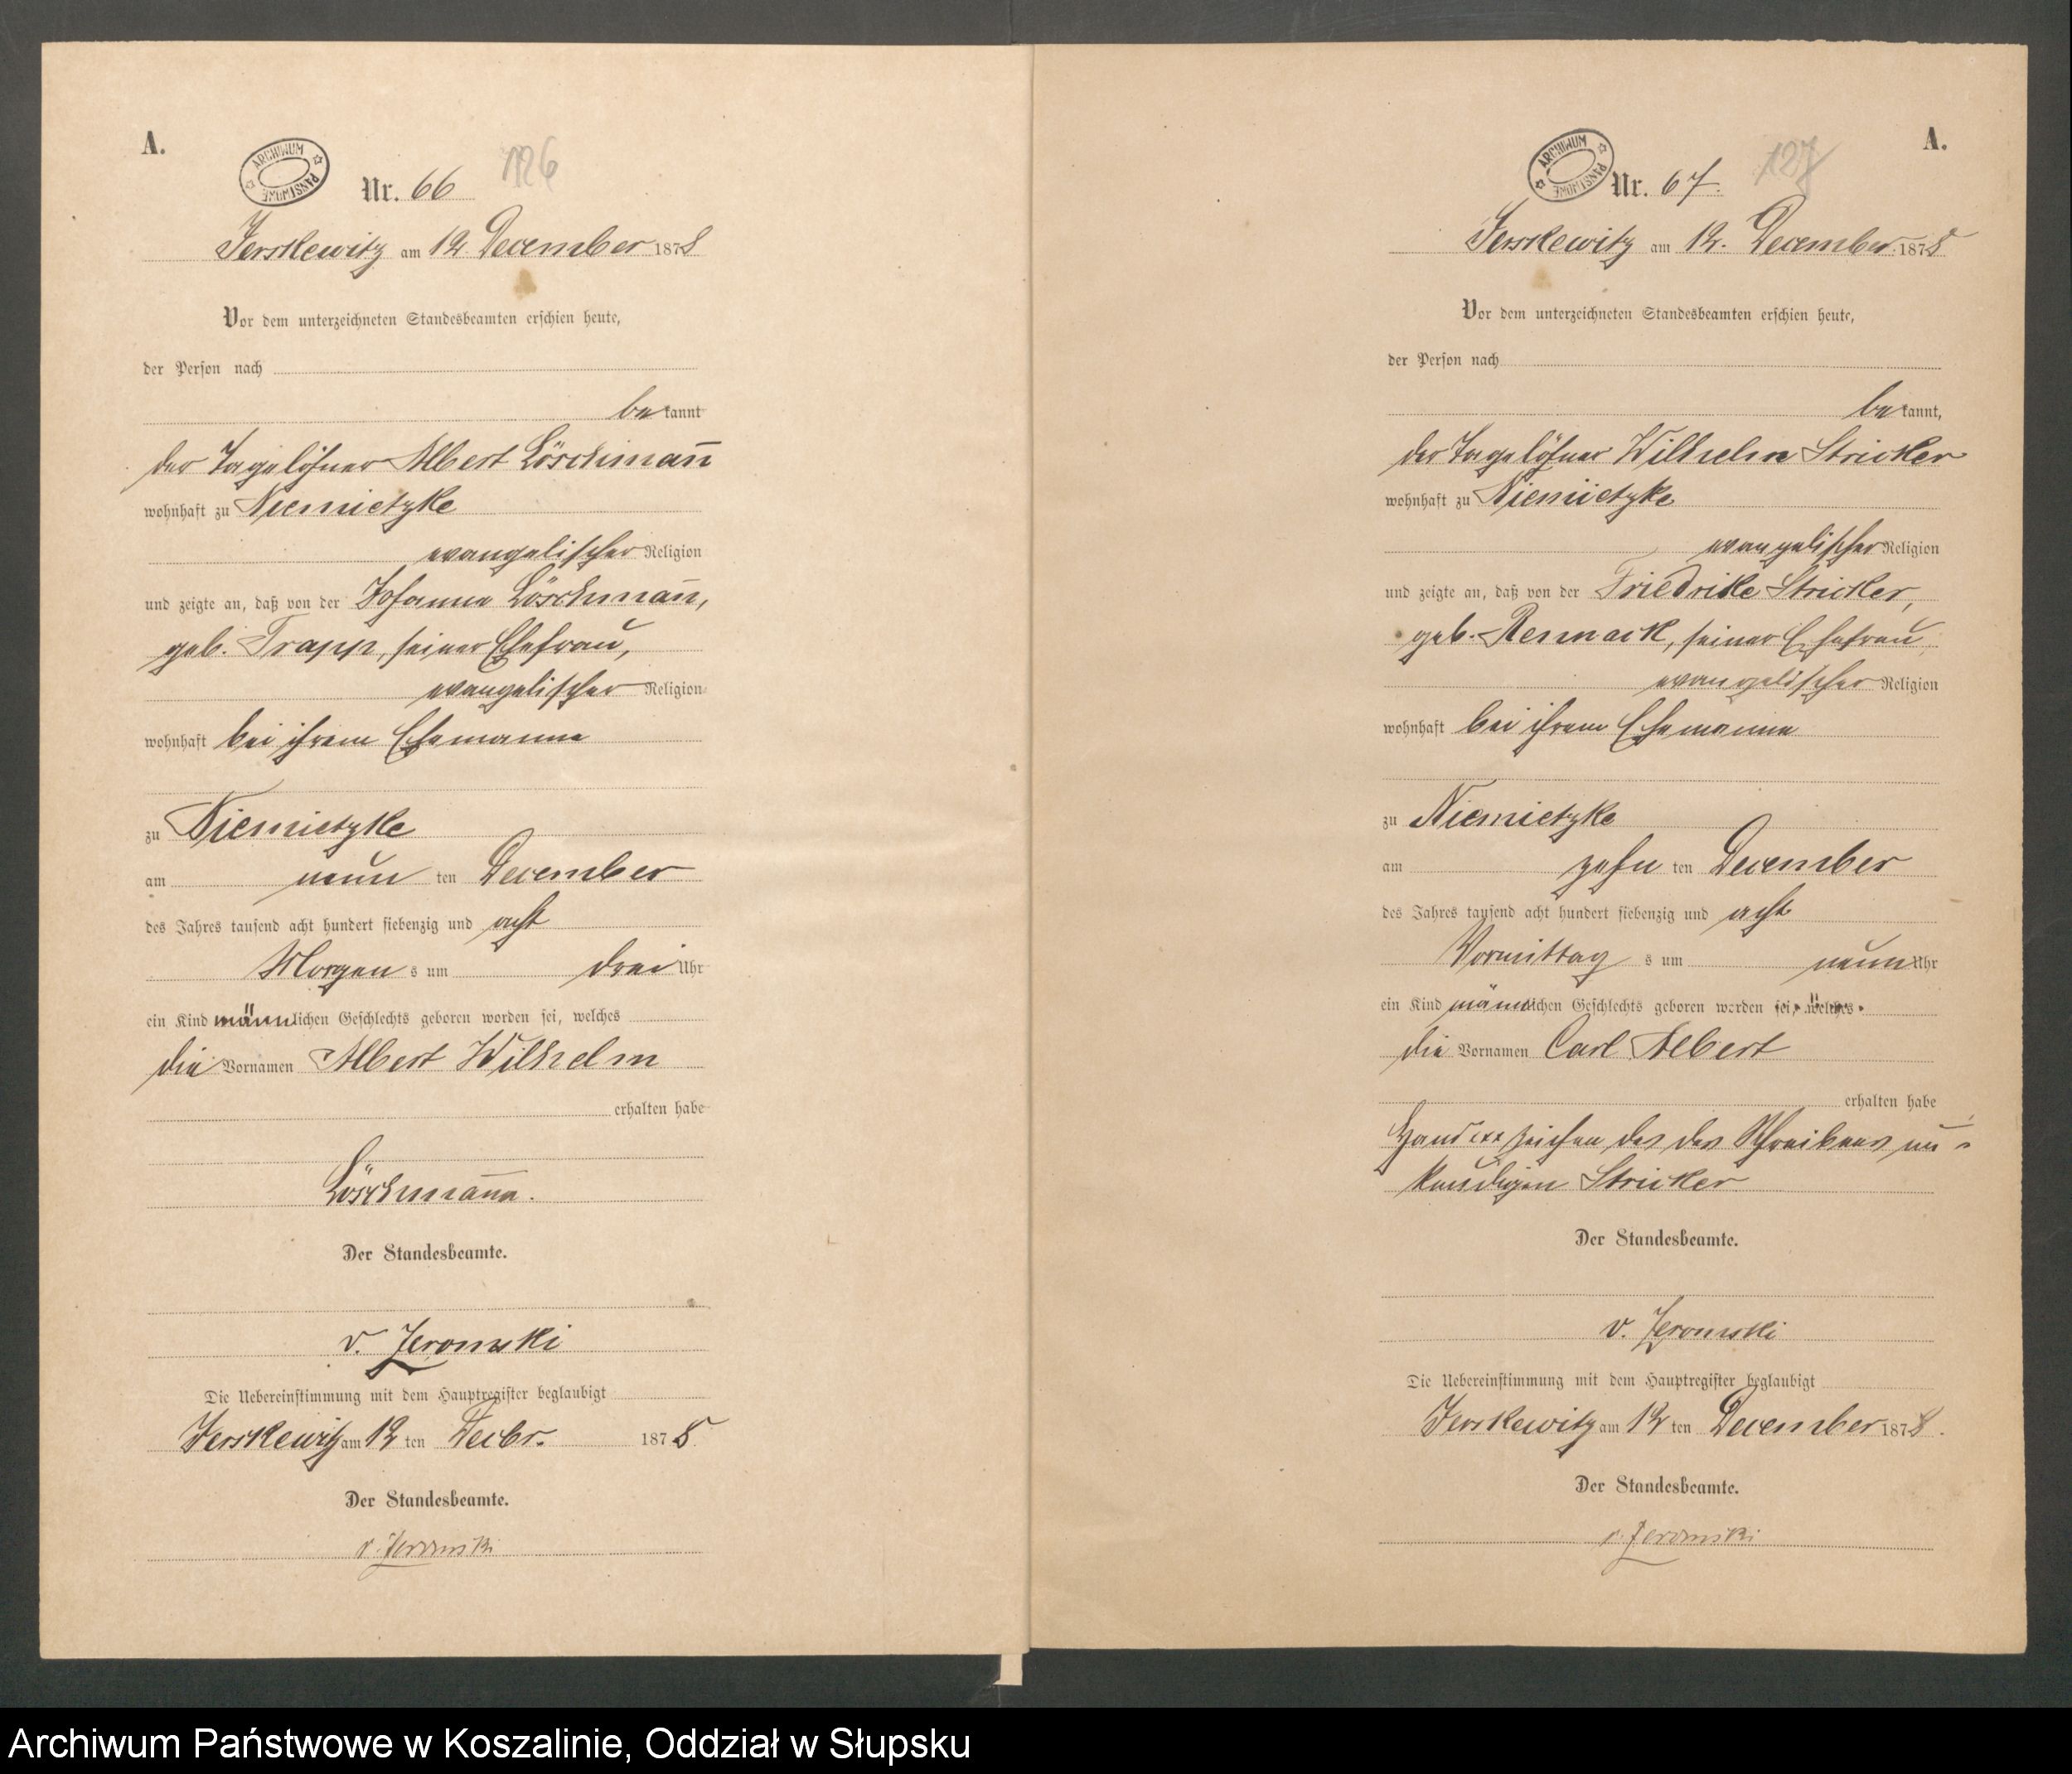 A.
ARCHIWUM PAŃSTWOWE
Nr. 66
126
Jerskewitz am 12. December 1878
Vor dem unterzeichneten Standesbeamten erschien heute,
der Person nach
bekannt
der Tagelöhner Albert Löschmann̄
wohnhaft zu Niemietzke
evangelischer Religion
und zeigte an, daß von der Johanna Löschman̄,
geb. Trapp, seiner Ehefrau,
evangelischer Religion
wohnhaft bei ihrem Ehemanne
zu Niemietzke
am neun ten December
des Jahres tausend acht hundert siebenzig und acht
Morgen s um drei Uhr
ein Kind männlichen Geschlechts geboren worden sei, welches
die Vornamen Albert Wilhelm
erhalten habe
Löschmann.
Der Standesbeamte.
v. Jeromski
Die Uebereinstimmung mit dem Hauptregister beglaubigt
Jerskewitz am 12 ten Decbr. 1878
Der Standesbeamte.
v. Jeromski
A.
ARCHIWUM PAŃSTWOWE
Nr. 67.
127
Jerskewitz am 12. December 1878
Vor dem unterzeichneten Standesbeamten erschien heute,
der Person nach
bekannt,
der Tagelöhner Wilhelm Stricker
wohnhaft zu Niemietzke
evangelischer Religion
und zeigte an, daß von der Friedrike Stricker,
geb. Remack, seiner Ehefrau,
evangelischer Religion
wohnhaft bei ihrem Ehemanne
zu Niemietzke
am zehn ten December
des Jahres tausend acht hundert siebenzig und acht
Vormittag s um neun Uhr
ein Kind männlichen Geschlechts geboren worden sei, welches
die Vornamen Carl Albert
erhalten habe
Hand xxx zeichen des des Schreibens un-
kundigen Stricker
Der Standesbeamte.
v. Jeromski
Die Uebereinstimmung mit dem Hauptregister beglaubigt
Jerskewitz am 12 ten December 1878.
Der Standesbeamte.
v. Jeromski
Archiwum Państwowe w Koszalinie, Oddział w Słupsku